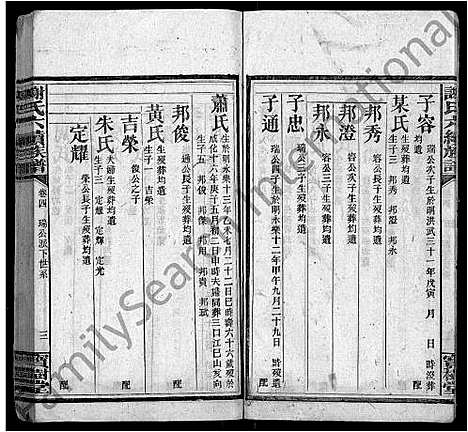 謝氏六續族譜
子容
瑞公次子生於明洪武三十一年戊寅 月 日 時歿葬
均遺
配
某氏
生歿葬均遺
生子三 邦秀 邦澄 邦永
邦秀
容公長子生歿葬均遺
邦澄
容公次子生歿葬均遺
邦永
容公三子生歿葬均遺
子忠
瑞公三子生歿葬均遺
子通
瑞公四子生於明永樂十二年甲午九月二十九日 時歿遺
配
蕭氏
生於明永樂十三年乙未七月二十二日巳時六十六歲歿於
成化十六年庚子五月初二日申時夫婦同葬三口江巳山亥向
生子五 邦俊 邦傑 邦用 邦貴 邦斌
邦俊
通公長子生歿葬均遺
配
黃氏
生歿葬均遺
生子一 吉榮
吉榮
俊公之子
配
朱氏
夫婦生歿葬均遺
生子三 定耀 定輝 定光
定耀
榮公長子生歿葬均遺
配
謝氏六續族譜
卷四 瑞公派下世系
三
寶樹堂
FamilySearch International